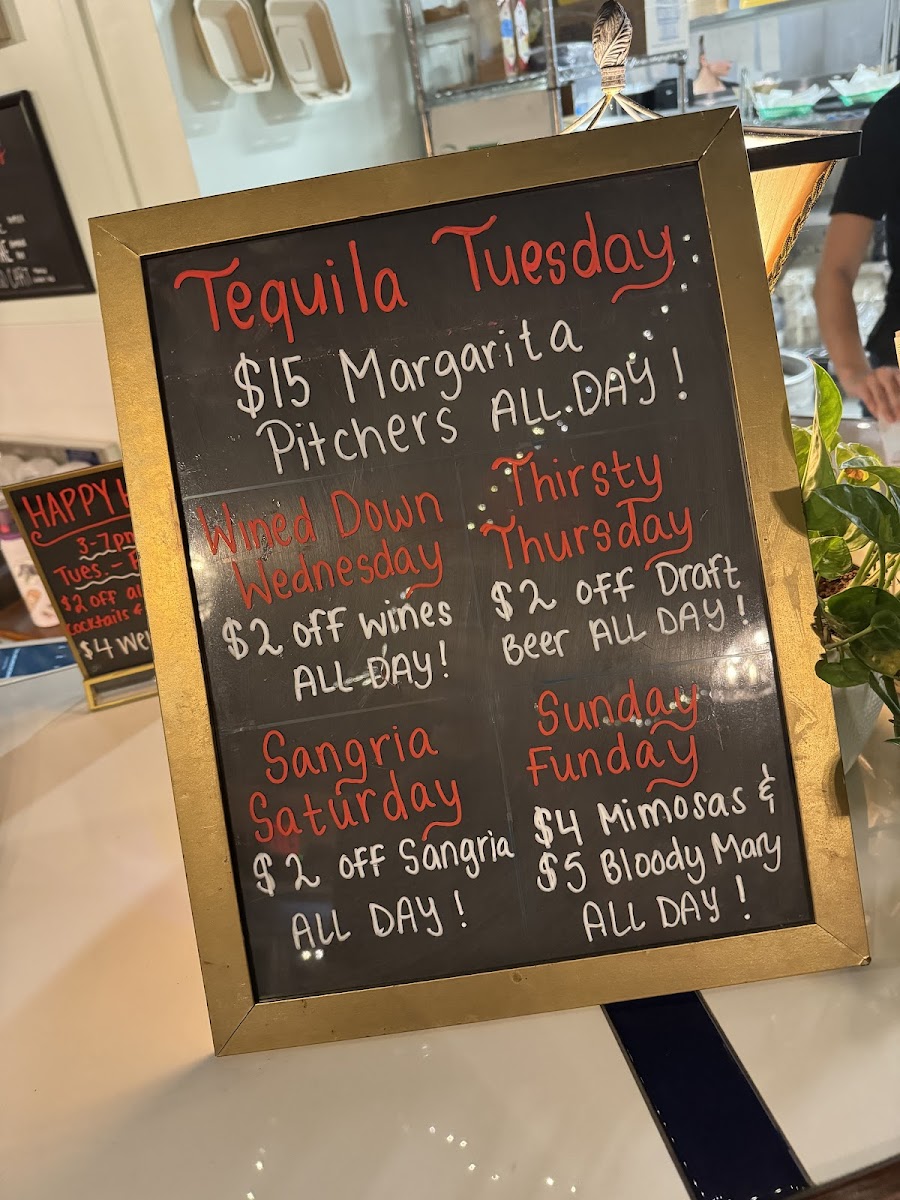 Tequila Tuesday
$15 Margarita
Pitchers ALL DAY!
Wined Down
Wednesday
$2 off wines
ALL DAY!
Thirsty
Thursday
$2 off Draft
Beer ALL DAY!
Sangria
Saturday
$2 off Sangria
ALL DAY!
Sunday
Funday
$4 Mimosas &
$5 Bloody Mary
ALL DAY!
HAPPY
3-7pm
Tues. -
$2 off
Cocktails &
$4